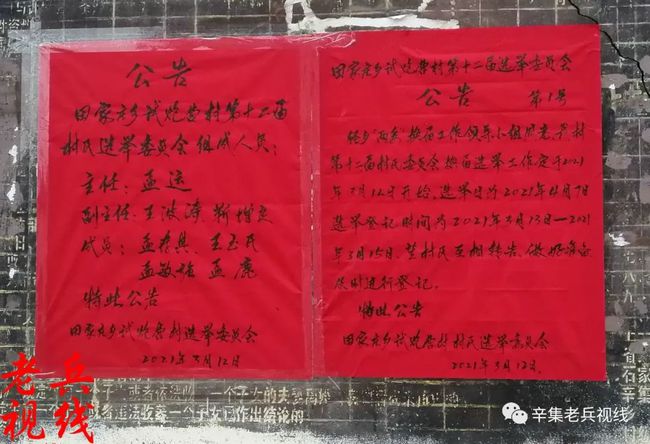 公告
田家庄乡试炮营村第十二届
村民选举委员会组成人员：
主任：孟运
副主任：王波涛 靳增立
成员：孟 王玉民
孟敏 孟
特此公告
田家庄乡试炮营村选举委员会
2021年3月12日
田家庄乡试炮营村第十二届选举委员会
公告 第1号
经乡“两委”换届工作领导小组同意，我村
第十二届村民委员会换届选举工作定于2021
年3月12日开始，选举日为2021年4月7日
选举登记时间为2021年3月13日—2021
年3月15日，望村民互相转告，做好准备
及时进行登记。
特此公告
田家庄乡试炮营村村民选举委员会
2021年3月12日.
老兵
视线
一个子女的夫妻
一个子女作出结论的
辛集老兵视线